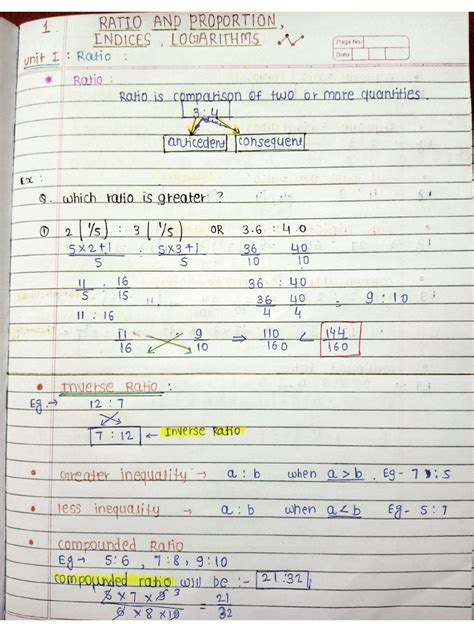 1. RATIO AND PROPORTION,
INDICES, LOGARITHMS
Page No.
Date
Unit I : Ratio :
Ratio :
Ratio is comparison of two or more quantities.
3 : 4
anticedent consequent
Ex :
Q. which ratio is greater ?
① 2 (1/5) : 3 (1/5) OR 3.6 : 4.0
5×2+1/5 : 5×3+1/5 36/10 40/10
11/5 : 16/15 36 : 40
11 : 16 36/4 40/4 = 9 : 10
11/16 9/10 ⇒ 110/160 < 144/160
• Inverse Ratio :
Eg. → 12 : 7
7 : 12 ← Inverse Ratio
• Greater inequality → a : b when a > b. Eg - 7 : 5
• less inequality → a : b when a < b Eg - 5 : 7
• Compounded Ratio
Eg → 5:6, 7:8, 9:10
compounded ratio will be :- 21:32
5 × 7 × 9 3 / 6 × 8 × 10 = 21/32